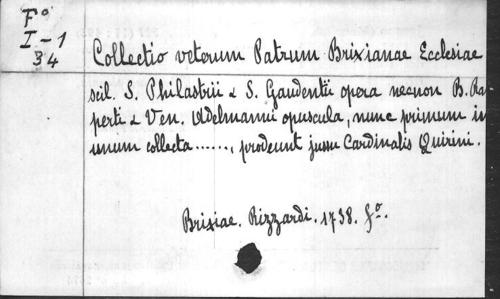 Fº
I-1
34
Collectio veterum Patrum Brixianae Ecclesiae
scil. S. Philastrii & S. Gaudentii opera necnon B. Ra
perti & Ven. Adelmanni opuscula, nunc primum in
unum collecta ......, prodeunt jussu Cardinalis Quirini.
Brixiae. Rizzardi. 1738. fº.